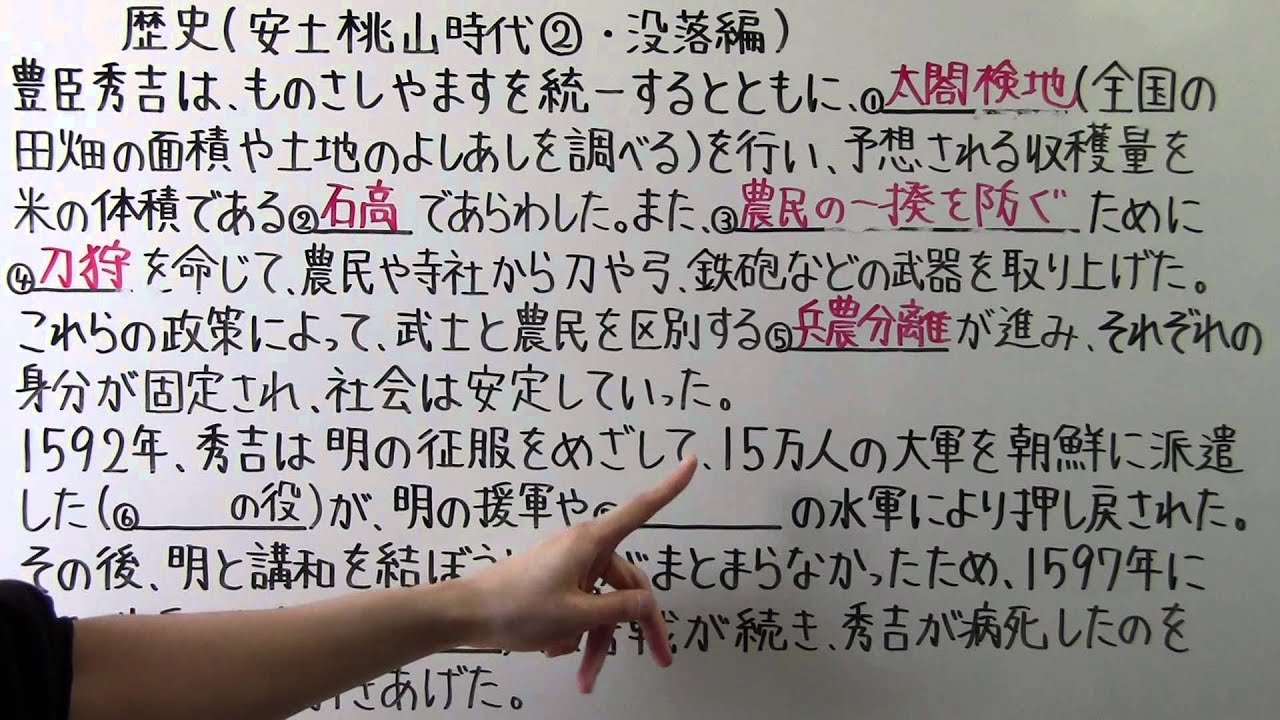 歴史(安土桃山時代②・没落編)
豊臣秀吉は、ものさしやますを統一するとともに、①太閤検地(全国の
田畑の面積や土地のよしあしを調べる)を行い、予想される収穫量を
米の体積である②石高であらわした。また、③農民の一揆を防ぐために
④刀狩を命じて、農民や寺社から刀や弓、鉄砲などの武器を取り上げた。
これらの政策によって、武士と農民を区別する⑤兵農分離が進み、それぞれの
身分が固定され、社会は安定していった。
1592年、秀吉は明の征服をめざして、15万人の大軍を朝鮮に派遣
した(⑥ の役)が、明の援軍や の水軍により押し戻された。
その後、明と講和を結ぼう がまとまらなかったため、1597年に
戦が続き、秀吉が病死したのを
きあげた。